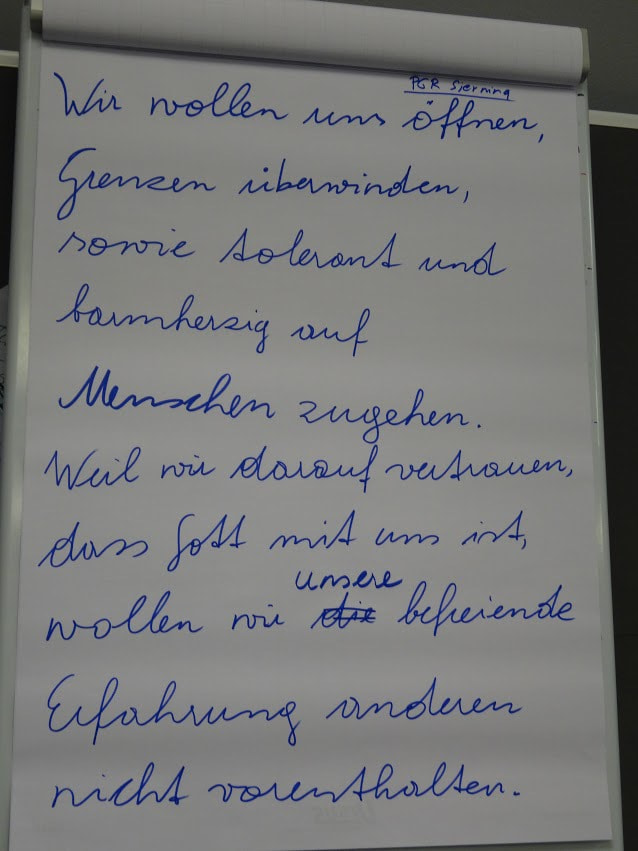 PGR Sierning
Wir wollen uns öffnen,
Grenzen überwinden,
sowie tolerant und
barmherzig auf
Menschen zugehen.
Weil wir darauf vertrauen,
dass Gott mit uns ist,
unsere
wollen wir die befreiende
Erfahrung anderen
nicht vorenthalten.